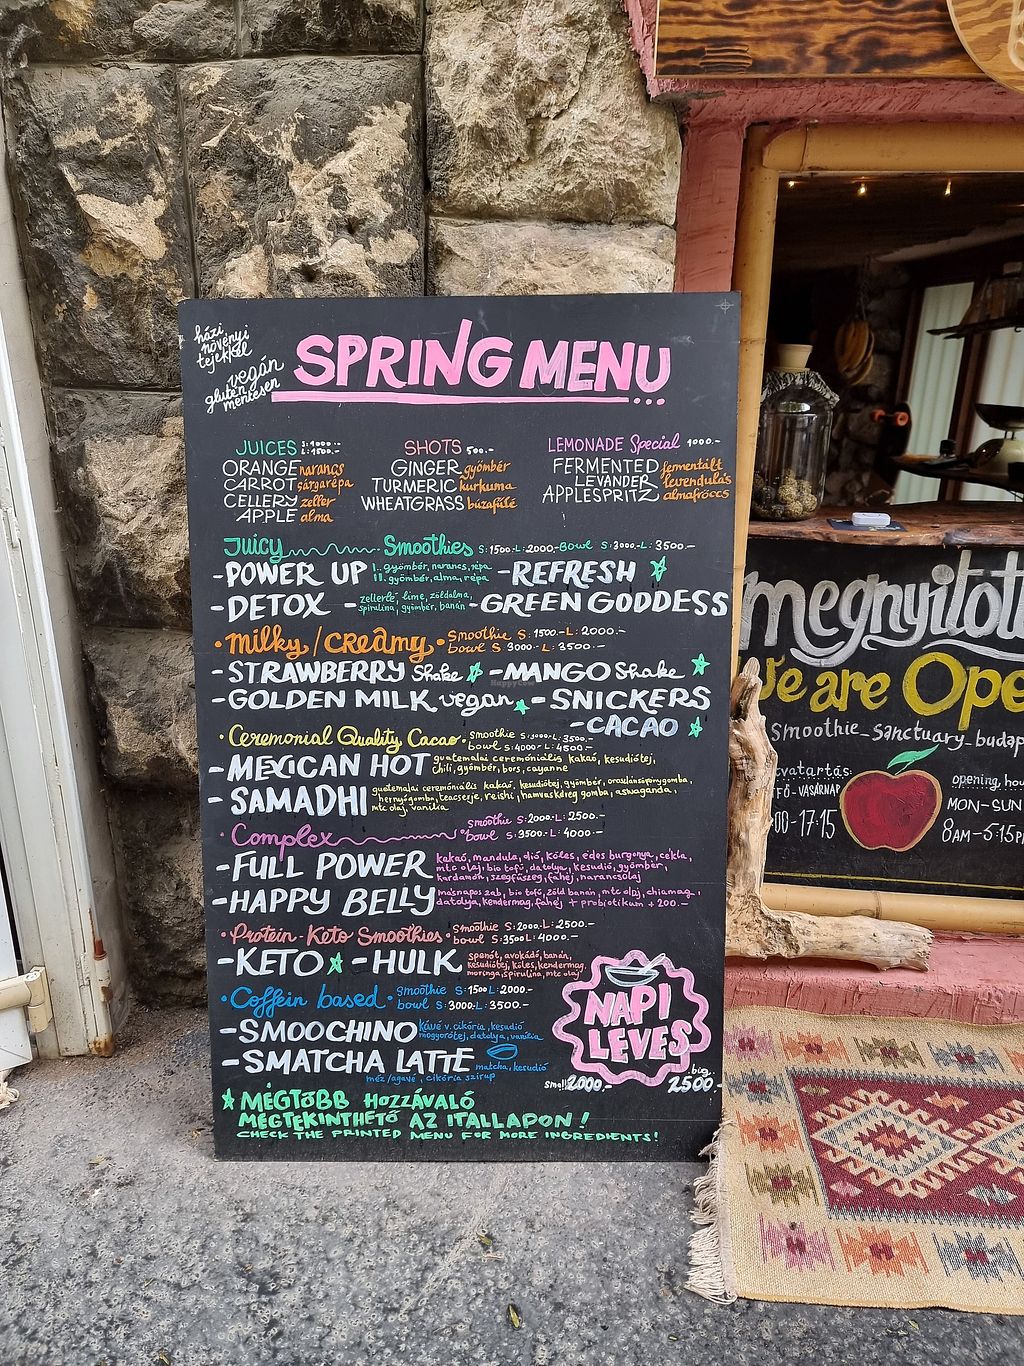 házi
növényi
tejekkel
vegán
glutén
mentesen
SPRING MENU
JUICES S:1000.- L:1500.-
ORANGE narancs
CARROT sárgarépa
CELLERY zeller
APPLE alma
SHOTS 500.-
GINGER gyömbér
TURMERIC kurkuma
WHEATGRASS búzafűlé
LEMONADE Special 1000.-
FERMENTED fermentált
LEVANDER levendulás
APPLESPRITZ almafröccs
Juicy Smoothies S:1500-L:2000.-Bowl S:3000-L:3500-
-POWER UP I.. gyömbér, narancs, répa
II. gyömbér, alma, répa
-REFRESH
-DETOX - zellerlé, lime, zöldalma,
spirulina, gyömbér, banán
-GREEN GODDESS
•Milky/Creamy• Smoothie S:1500.-L:2000.-
bowl S:3000-L:3500.-
-STRAWBERRY Shake -MANGO Shake
-GOLDEN MILK vegan -SNICKERS
-CACAO
•Ceremonial Quality Cacao• smoothie S:3000-L:3500.-
bowl S:4000-L:4500.-
-MEXICAN HOT guatemalai ceremóniális kakaó, kesudiótej,
chili, gyömbér, bors, cayanne
-SAMADHI guatemalai ceremóniális kakaó, kesudiótej, gyömbér, oroszlánsörénygomba,
hernyógomba, reishi, aswaganda,
mtc olaj, vanília
•Complex smoothie S:2000-L:2500.-
bowl S:3500-L:4000.-
-FULL POWER kakaó, mandula, dió, köles, édes burgonya, cékla,
mtc olaj, bio tofú, datolya, kesudió, gyömbér,
kardamon, szegfűszeg, fahéj, narancsolaj
-HAPPY BELLY másnapos zab, bio tofú, zöld banán, mtc olaj, chiamag,
datolya, kendermag, fahéj + probiotikum +200.-
•Protein-Keto Smoothies• smoothie S:2000-L:2500.-
bowl S:3500 L:4000.-
-KETO -HULK spenót, avokádó, banán,
kesudiótej, köles, kendermag,
moringa, spirulina, mtc olaj
•Coffein based• smoothie S:1500 L:2000.-
bowl S:3000-L:3500.-
-SMOOCHINO kávé v. cikória, kesudió
mogyorótej, datolya, vanília
-SMATCHA LATTE matcha, kesudió
méz/agave, cikória szirup
NAPI
LEVES
small 2000.- big 2500-
MÉGTÖBB HOZZÁVALÓ
MEGTEKINTHETŐ AZ ITALLAPON!
CHECK THE PRINTED MENU FOR MORE INGREDIENTS!
megnyitott
We are Ope
smoothie_sanctuary_budap
tvatartás:
TFŐ-VASÁRNAP
:00-17:15
opening hou
MON-SUN
8AM-5:15P
HappyCow